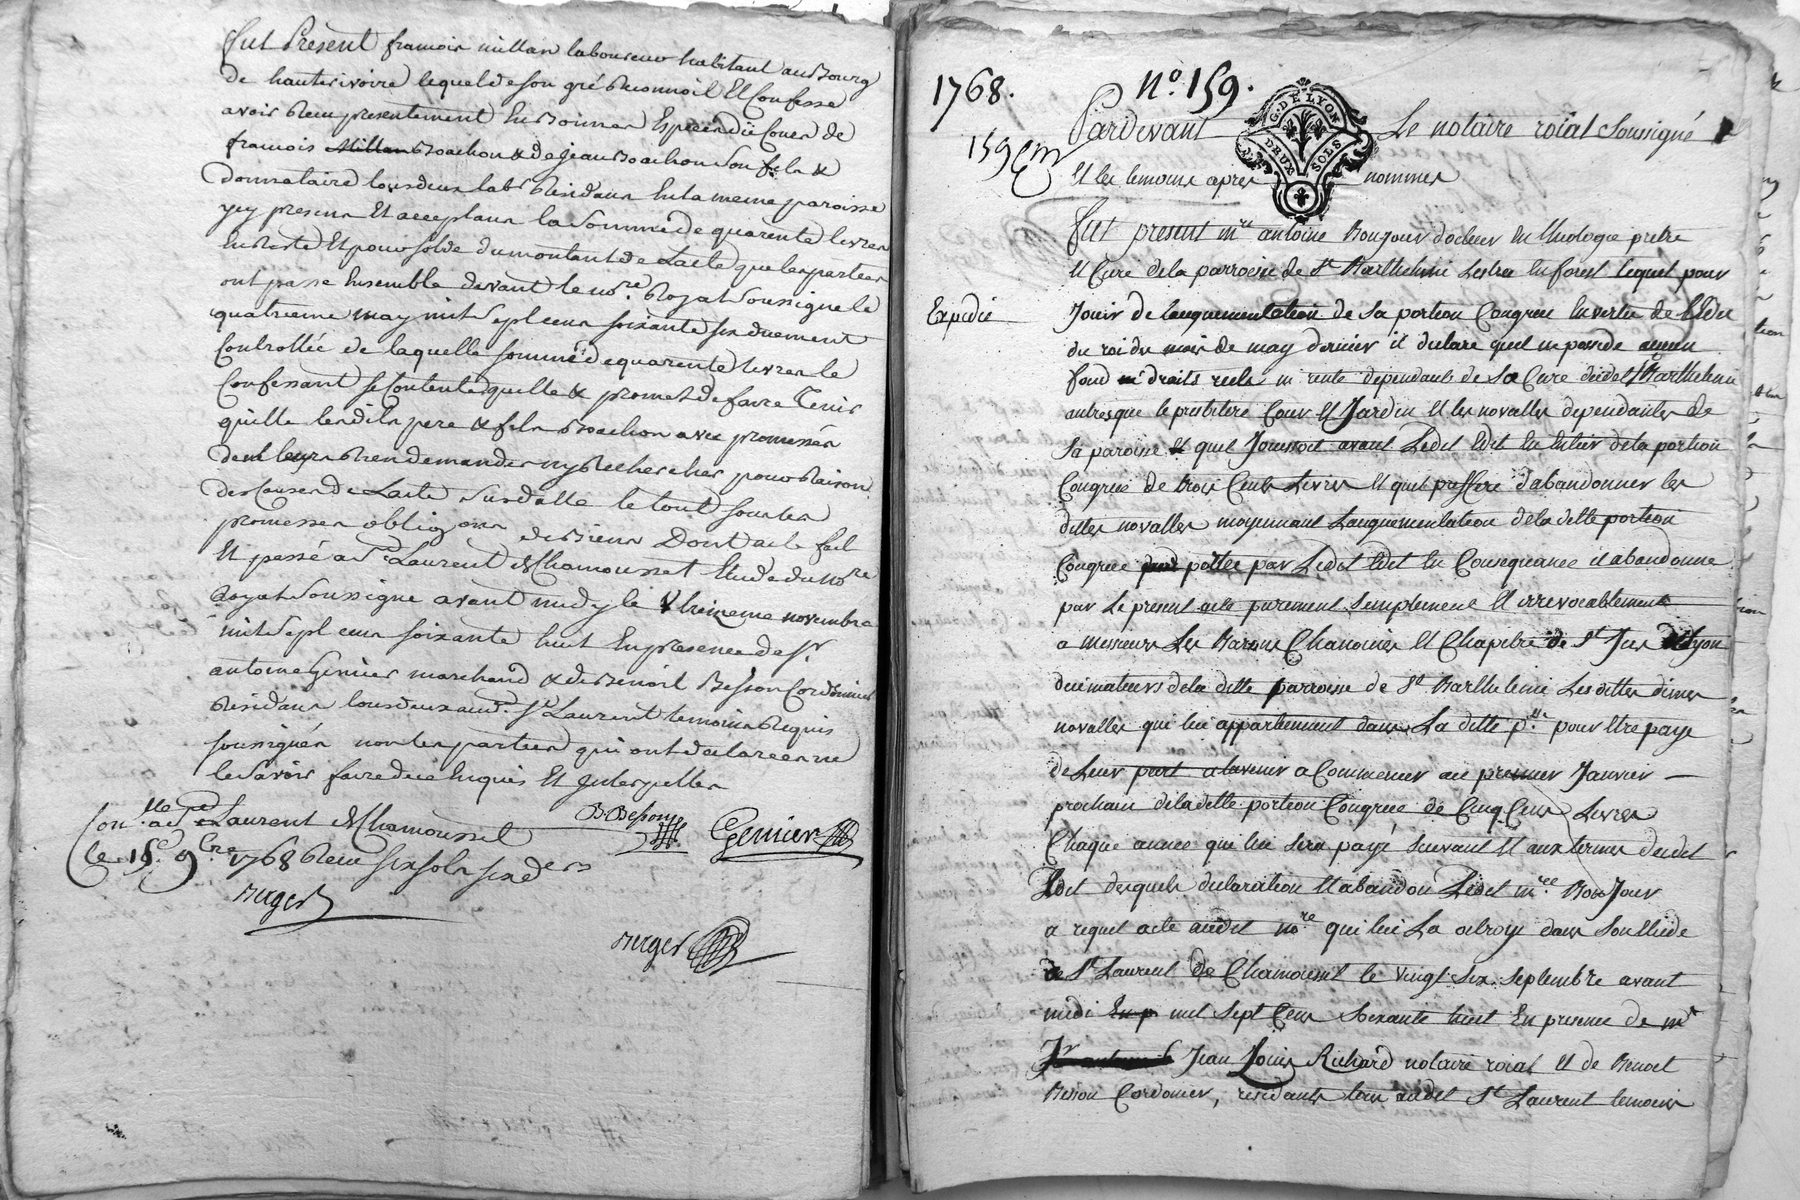 fut Présent francois millan laboureur habitant au Bourg
de hauterivoire lequel de son gré Reconnoit Et Confesse
avoir Reçu presentement En Bonnes Especes du Cours de
francois Millan Boachon & de jean Boachon Son fils &
donnataire tous deux labrs Residans En la meme paroisse
ycy presens Et acceptans la Somme de quarente livres
En Reste Et pour Solde du montant de Lacte que les parties
ont passé Ensemble devant le nore Royal Soussigné le
quatrieme may mil Sept cens soixante six duement
Controllée de laquelle somme de quarente livres le
Confessant se Contente quitte & promet de faire Tenir
quitte lesdits pere & fils Boachon avec promesses
de ne leurs Rien demander ny Rechercher pour Raison
des Causes de Lacte Susdatté le tout sous les
promesses obligons de Biens Dont acte fait
Et passé a St Laurent de Chamousset Etude du nore
Royal Soussigné avant midy le treizieme novembre
mil Sept cens soixante huit En presence de Sr
antoine Genier marchand & de Benoit Besson Cordonnier
Residans tous deux aud. St Laurent temoins Requis
soussignés non les parties qui ont declaré ne
le Savoir faire de ce Enquis Et Interpellés
Conllé a St Laurent de Chamousset
le 15e 9bre 1768 Reçu six sols six ders
B Besson Genier
Berger
Berger
1768. No. 159.
159 em
G. DE LYON
DEUX SOLS
Pardevant Le notaire roial Soussigné
Et les temoins apres nommes
Fut present mre antoine Bonjour docteur En theologie pretre
Et Curé de la parroisse de St Barthelemi Lestra En forest lequel pour
Expedié
Jouir de laugmentation de Sa portion Congrue En vertu de l'Edit
du roi du mois de may dernier il declare quil ne possede aucun
fond ni droits reels ni rente dependants de Sa Cure dudit St Barthelemi
autres que le presbitere Cour Et Jardin Et les novalles dependantes de
Sa paroisse Et quil Jouissoit avant Ledit Edit En Entier de la portion
Congrue de trois Cents Livres Et quil preffere d'abandonner les
dittes novalles moyennant Laugmentation de la ditte portion
Congrue portée par Ledit Edit En Consequance il abandonne
par Le present acte purement Simplement Et irrevocablement
a messieurs Les Barons Chanoines Et Chapitre de St Just de Lyon
decimateurs de la ditte parroisse de St Barthelemi Les dittes dimes
novalles qui lui appartiennent dans La ditte psse pour Etre payé
de Leur part a lavenir a Commencer au premier Janvier —
prochain de la ditte portion Congrue de Cinq Cens Livres
Chaque année qui lui Sera payé Suivant Et aux termes dudit
Edit desquels declaration Et abandon Ledit mre Bon Jour
a requit acte audit nore qui lui La octroyé dans Son Etude
de St Laurent de Chamousset le vingt Six Septembre avant
midi En p mil Sept Cens Soixante huit En presence de mr
Jean Louis Richard notaire roial Et de Benoit
Besson Cordonier, residants tous audit St Laurent temoins